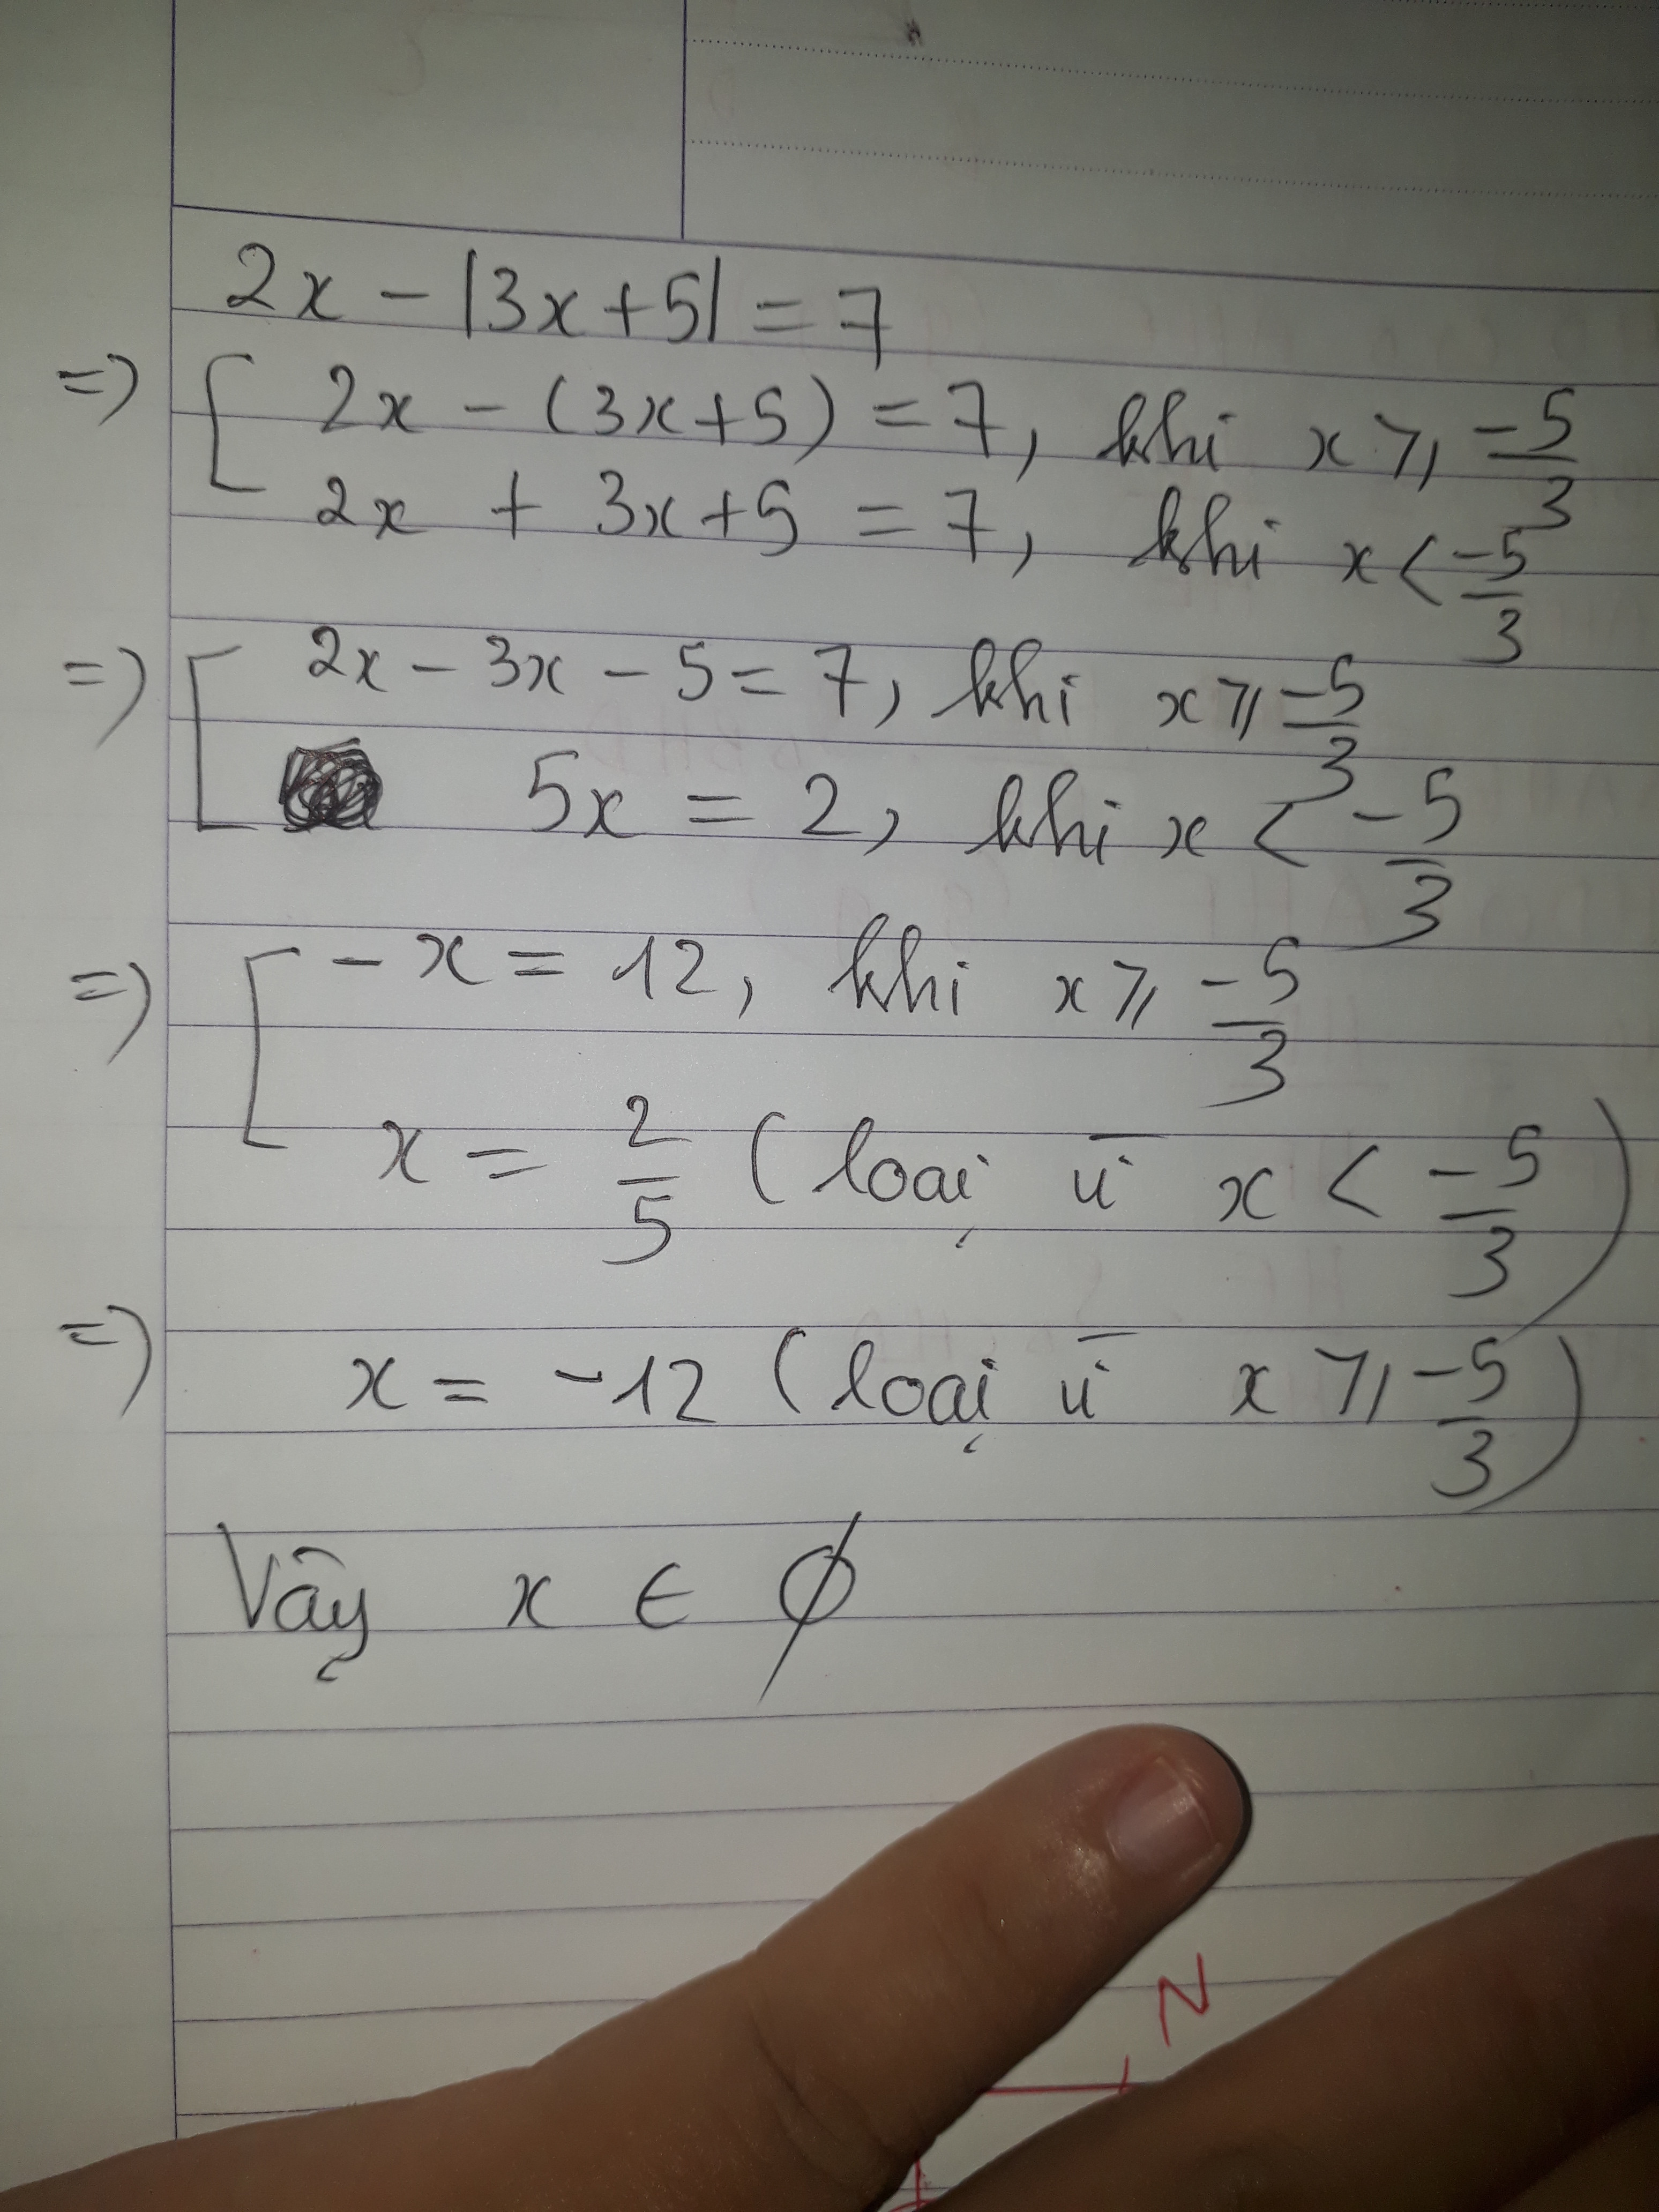 2x - |3x+5| = 7
=> [ 2x - (3x+5) = 7, khi x ≥ -5/3
2x + 3x+5 = 7, khi x < -5/3
=> [ 2x - 3x - 5 = 7, khi x ≥ -5/3
5x = 2, khi x < -5/3
=> [ -x = 12, khi x ≥ -5/3
x = 2/5 (loại vì x < -5/3)
=> x = -12 (loại vì x ≥ -5/3)
Vậy x ∈ ∅
N